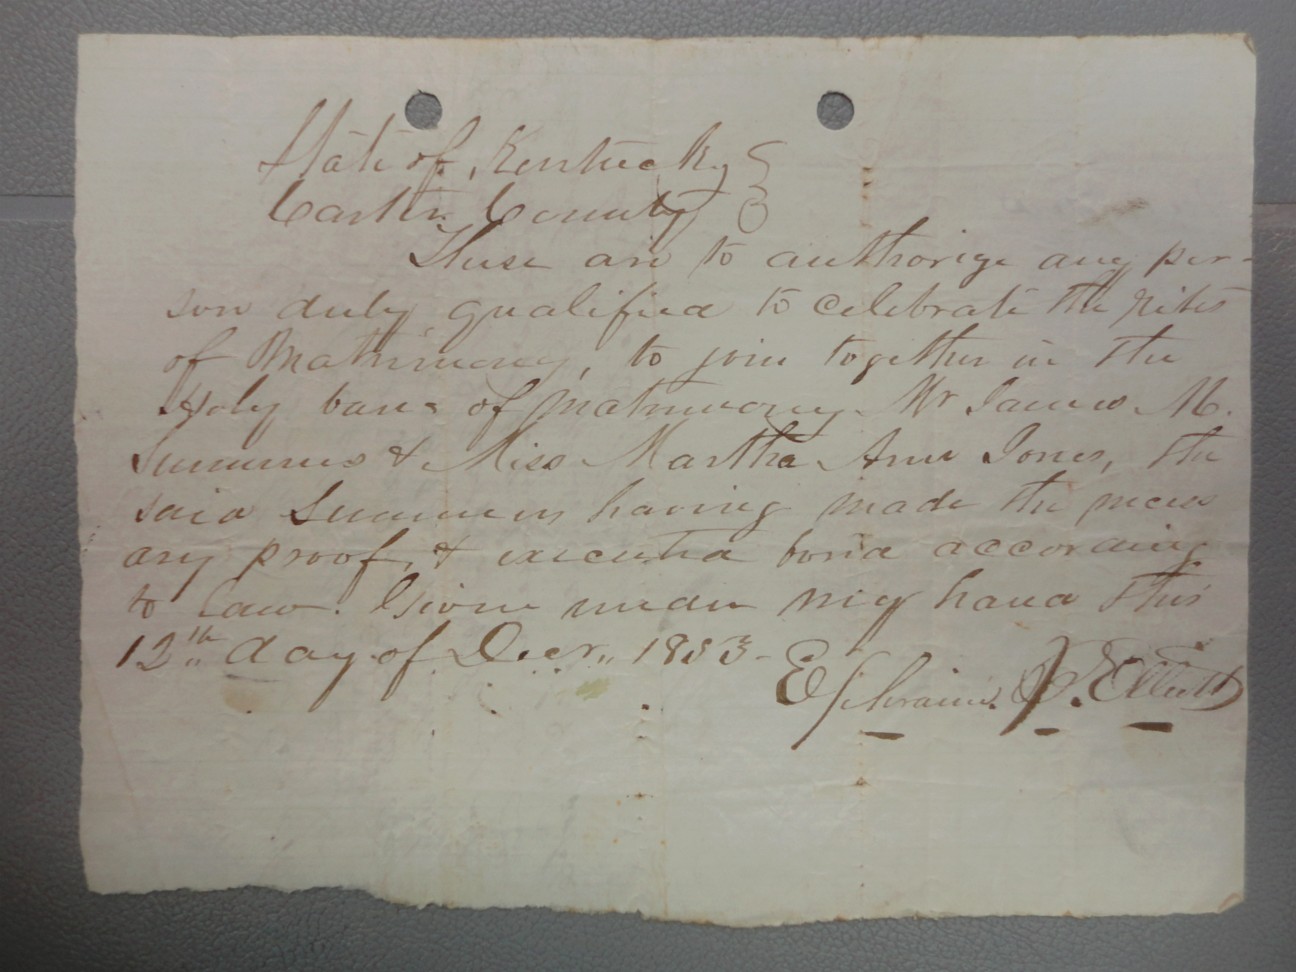 State of Kentucky
Carter County
These are to authorize any per-
son duly qualified to celebrate the rites
of Matrimony, to join together in the
Holy bans of matrimony Mr James M.
Summers & Miss Martha Ann Jones, the
said Summers having made the necess
ary proof, & executed bond according
to law. Given under my hand this
12th day of Decr, 1853-
Ephraim Elliott